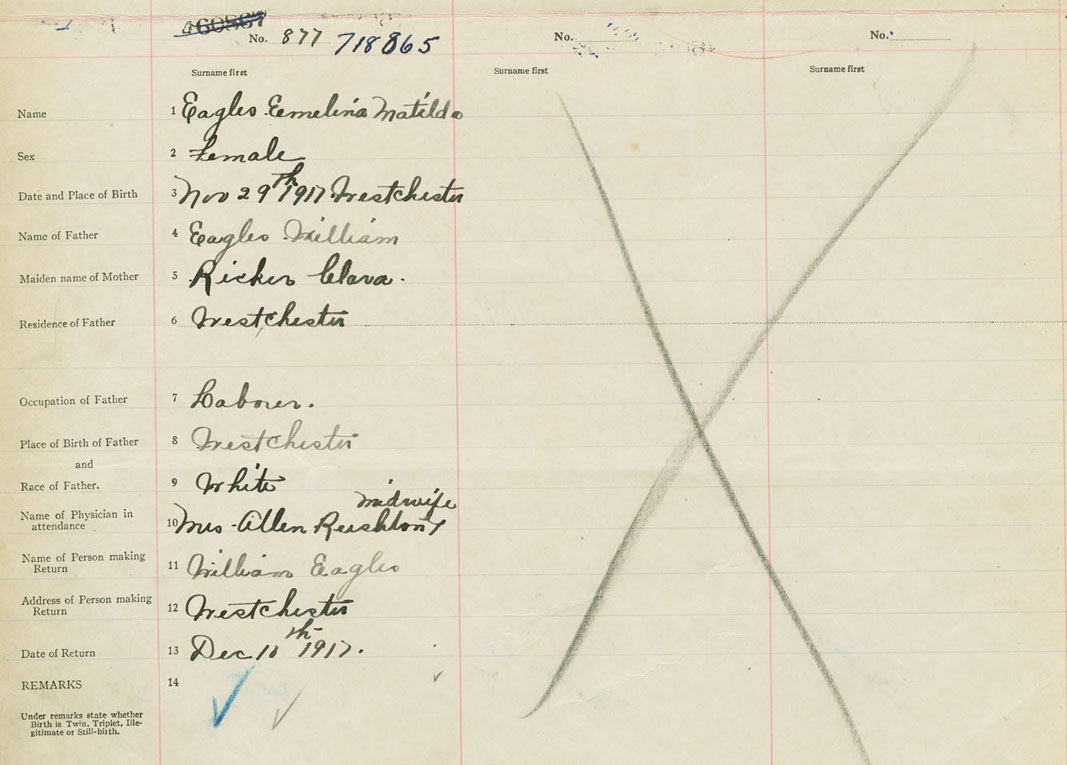 No. 877 718865
No.
No.
Surname first
Surname first
Surname first
Name 1 Eagles Eemelina Matilda
Sex 2 Female
Date and Place of Birth 3 Nov 29th 1917 Westchester
Name of Father 4 Eagles William
Maiden name of Mother 5 Ricker Clara.
Residence of Father 6 Westchester
Occupation of Father 7 Laborer.
Place of Birth of Father 8 Westchester
and
Race of Father. 9 White
midwife
Name of Physician in
attendance 10 Mrs. Allen Rushton
Name of Person making
Return 11 William Eagles
Address of Person making
Return 12 Westchester
Date of Return 13 Dec 10th 1917.
REMARKS 14
Under remarks state whether
Birth is Twin, Triplet, Ille-
gitimate or Still-birth.